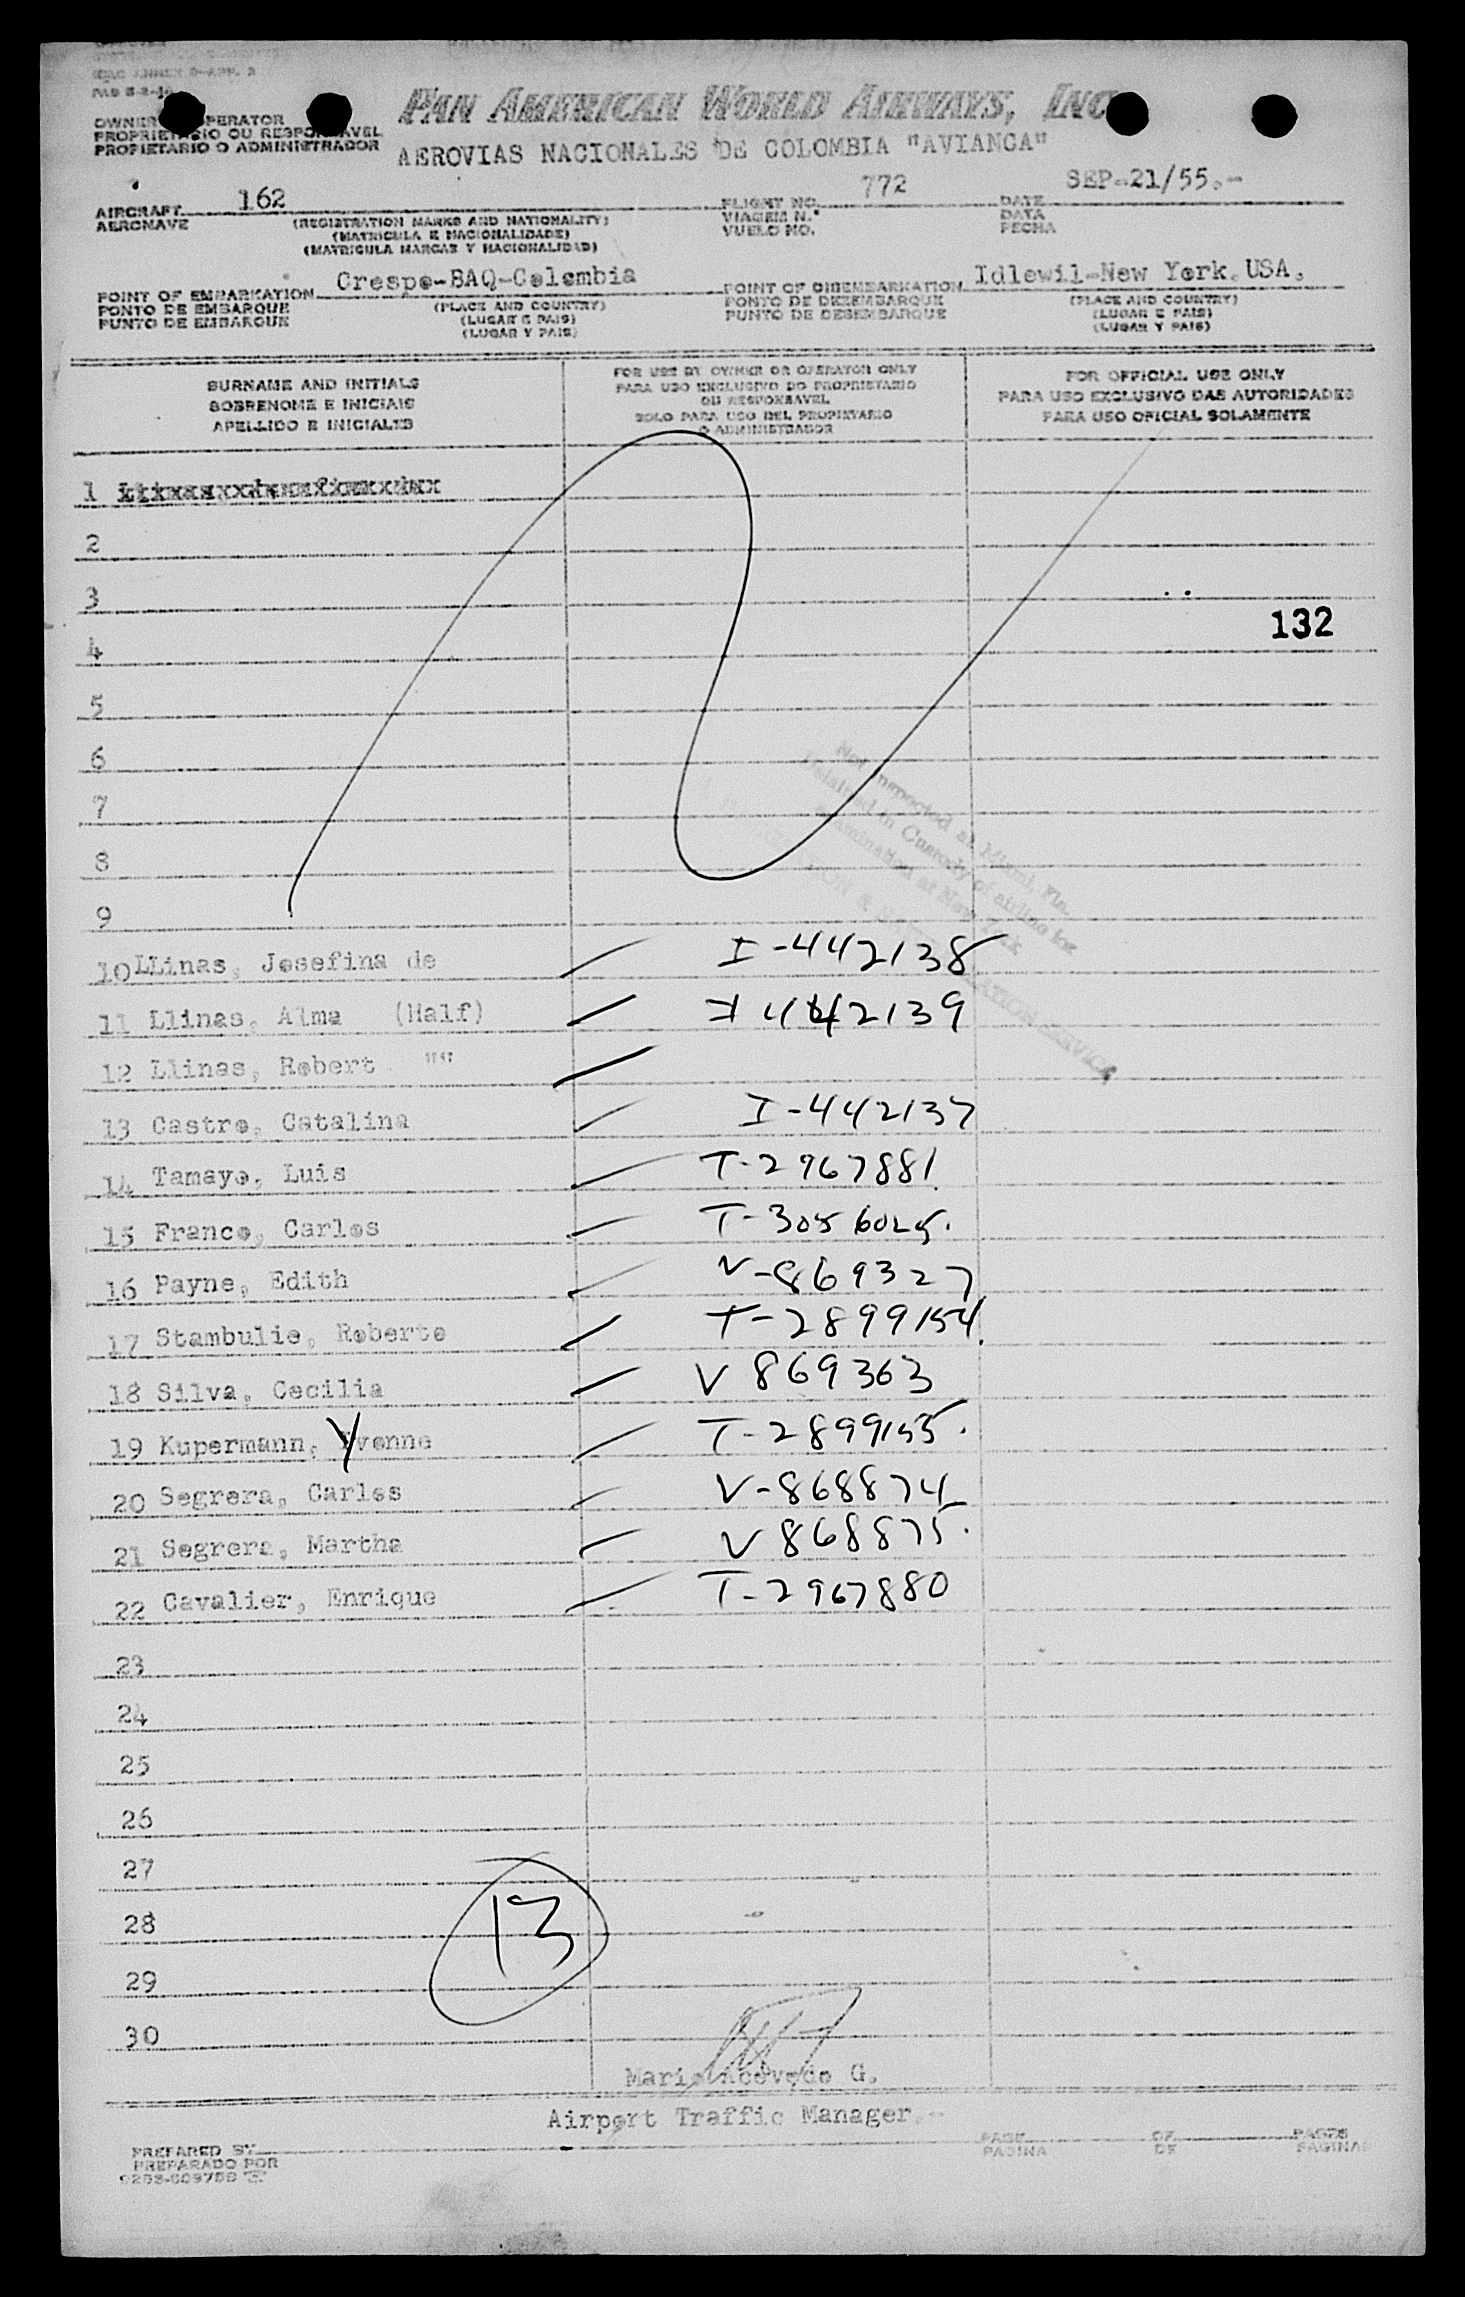 ICAO ANNEX 9-APP. 3
OWNER OPERATOR
PROPRIETARIO OU RESPONSAVEL
PROPIETARIO O ADMINISTRADOR
PAN AMERICAN WORLD AIRWAYS, INC
AEROVIAS NACIONALES DE COLOMBIA "AVIANCA"
AIRCRAFT 162 FLIGHT NO. 772 DATE SEP-21/55.-
AERONAVE (REGISTRATION MARKS AND NATIONALITY) VIAGEM N.º DATA
(MATRICULA E NACIONALIDADE) VUELO NO. FECHA
(MATRICULA MARCAS Y NACIONALIDAD)
POINT OF EMBARKATION Crespo-BAQ-Colombia POINT OF DISEMBARKATION Idlewil-New York. USA.
PONTO DE EMBARQUE (PLACE AND COUNTRY) PONTO DE DESEMBARQUE (PLACE AND COUNTRY)
PUNTO DE EMBARQUE (LUGAR E PAIS) PUNTO DE DESEMBARQUE (LUGAR E PAIS)
(LUGAR Y PAIS) (LUGAR Y PAIS)
SURNAME AND INITIALS
SOBRENOME E INICIAIS
APELLIDO E INICIALES
FOR USE BY OWNER OR OPERATOR ONLY
PARA USO EXCLUSIVO DO PROPRIETARIO
OU RESPONSAVEL
SOLO PARA USO DEL PROPIETARIO
O ADMINISTRADOR
FOR OFFICIAL USE ONLY
PARA USO EXCLUSIVO DAS AUTORIDADES
PARA USO OFICIAL SOLAMENTE
1
2
3
132
4
5
6
7
8
9
Not inspected at Miami, Fla.
Retained in Custody of airline for
examination at New York
10 LLinas, Josefina de I-442138
11 Llinas, Alma (Half) I 442139
12 Llinas, Robert
13 Castro, Catalina I-442137
14 Tamayo, Luis T-2967881
15 Franco, Carlos T-3056025.
16 Payne, Edith V-869327
17 Stambulie, Roberto T-2899154.
18 Silva, Cecilia V 869363
19 Kupermann, Yvonne T-2899155.
20 Segrera, Carlos V-868874
21 Segrera, Martha V 868875.
22 Cavalier, Enrique T-2967880
23
24
25
26
27
28
13
29
30
Mario Acevedo G.
Airport Traffic Manager.-
PREPARED BY PAGE OF PAGES
PREPARADO POR PAGINA DE PAGINAS